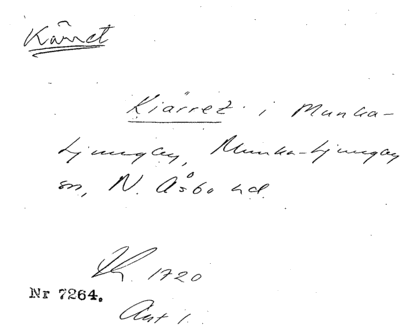 Kärret
Kiärret i Munka-
Ljungby, Munka-Ljungby
sn, N. Åsbo hd.
1720
Nr 7264.
Ant 1.